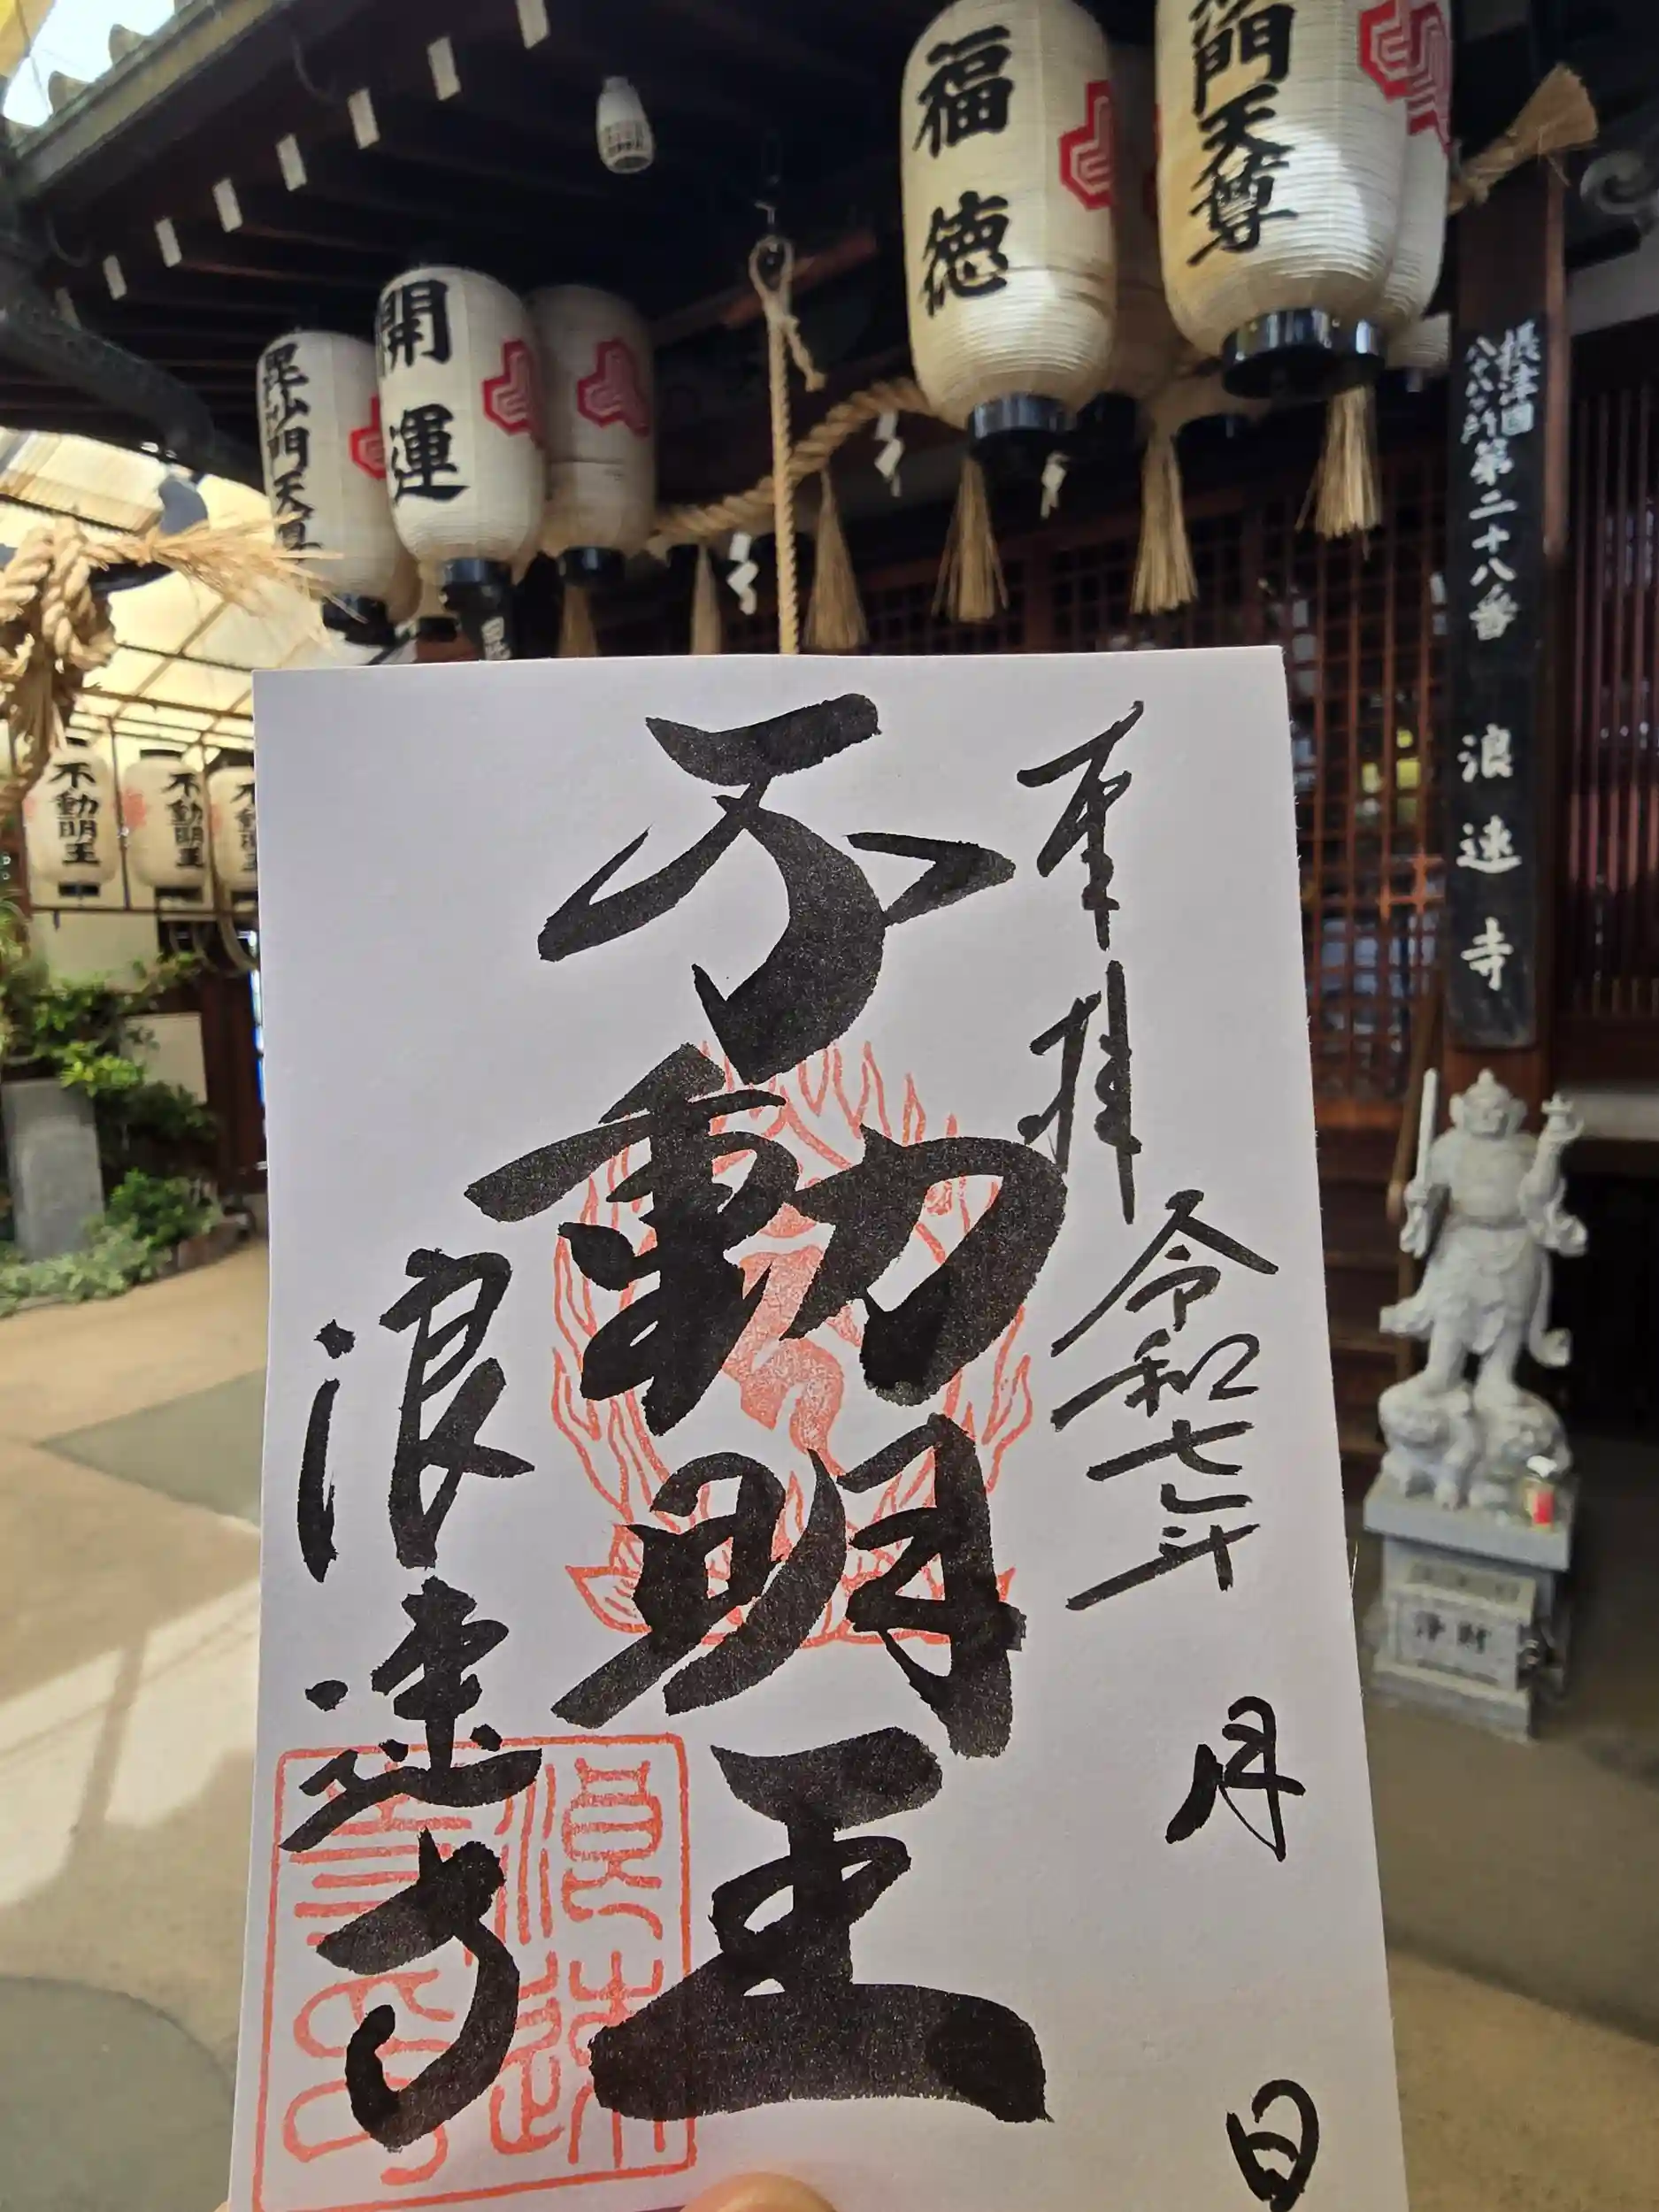 福徳
門天尊
開運
毘沙門天尊
摂津国
八十八ヶ所第二十八番 浪速寺
不動明王
不動明王
不動
奉拝
令和七年 月 日
不動明王
浪速寺
浄財